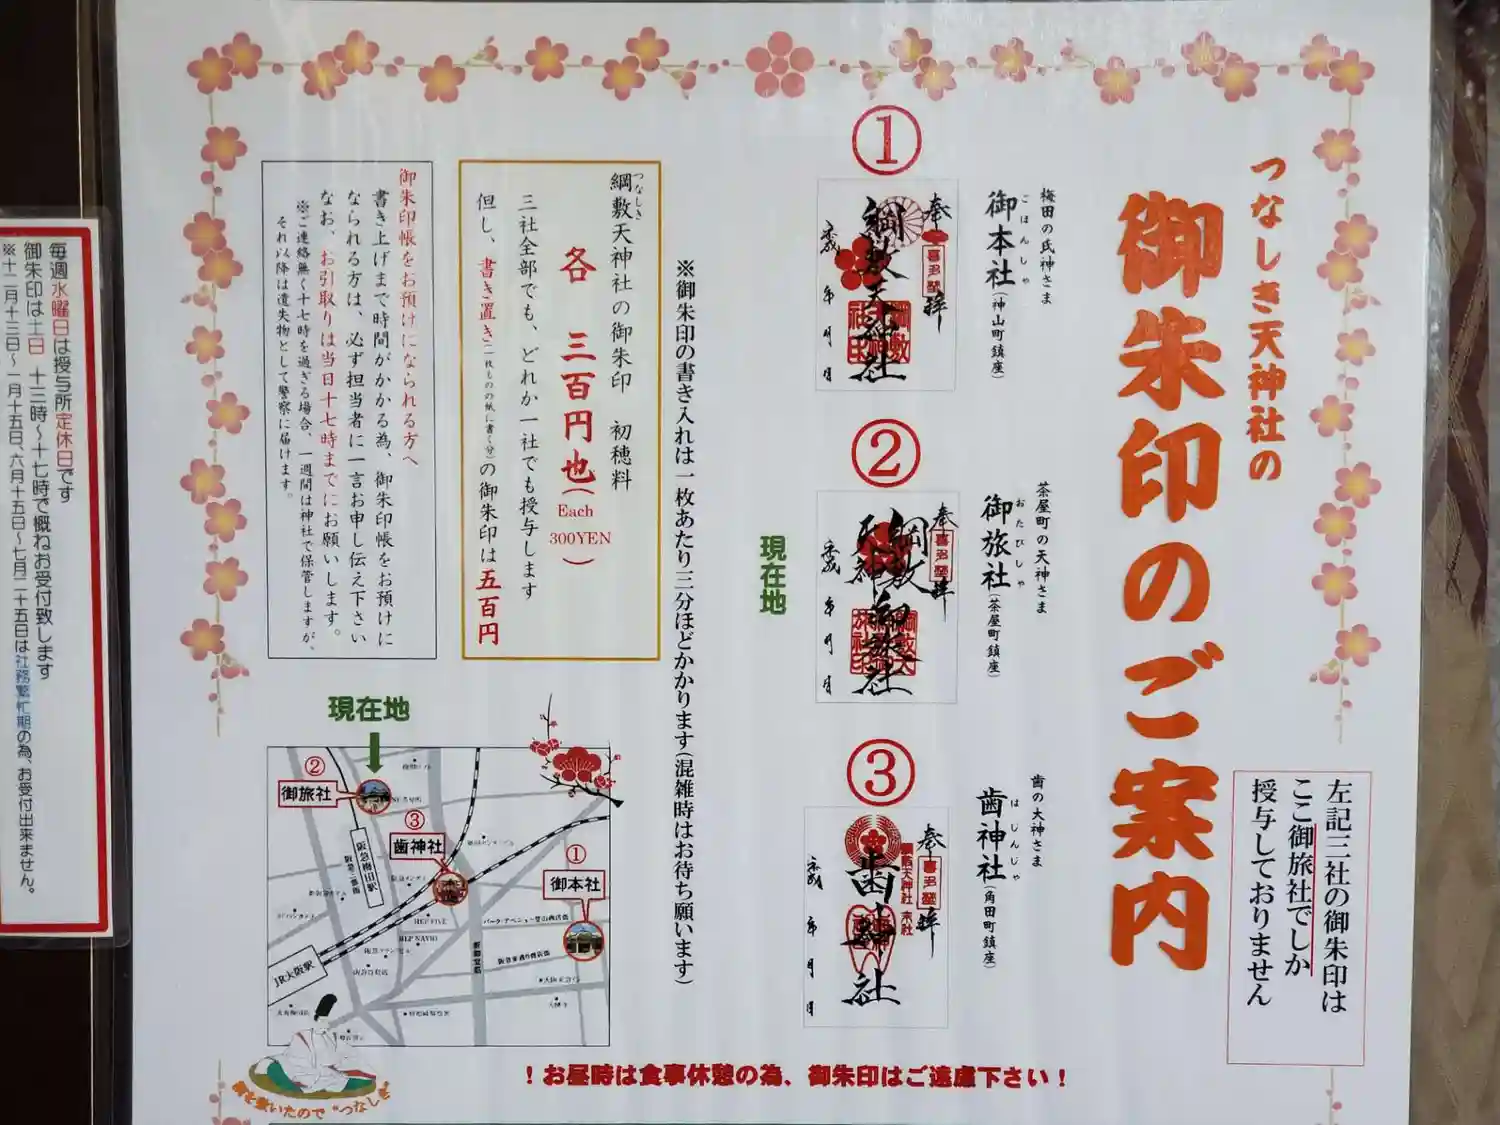 つなしき天神社の
御朱印のご案内
左記三社の御朱印は
ここ御旅社でしか
授与しておりません
①
梅田の氏神さま
御本社(神山町鎮座)
ごほんしゃ
奉拝
喜多埜
綱敷天神社
年月日
②
茶屋町の天神さま
御旅社(茶屋町鎮座)
おたびしゃ
奉拝
喜多埜
年月日
現在地
③
歯の大神さま
歯神社(角田町鎮座)
はじんじゃ
奉拝
喜多埜
綱敷天神社 末社
歯神社
年月日
※御朱印の書き入れは一枚あたり三分ほどかかります(混雑時はお待ち願います)
綱敷天神社の御朱印 初穂料
つなしき
各 三百円也(Each 300YEN)
三社全部でも、どれか一社でも授与します
但し、書き置き(一枚ものの紙に書く分)の御朱印は五百円
御朱印帳をお預けになられる方へ
書き上げまで時間がかかる為、御朱印帳をお預けに
なられる方は、必ず担当者に一言お申し伝え下さい
なお、お引取りは当日十七時までにお願いします。
※ご連絡無く十七時を過ぎる場合、一週間は神社で保管しますが、
それ以降は遺失物として警察に届けます。
現在地
②
御旅社
③
歯神社
①
御本社
阪急梅田駅
HEP FIVE
HEP NAVIO
パーク・アベニュー堂山商店街
阪急東通り商店街
新御堂筋
JR大阪駅
を敷いたので“つなしき”
!お昼時は食事休憩の為、御朱印はご遠慮下さい!
毎週水曜日は授与所定休日です
御朱印は土日 十三時～十七時で概ねお受付致します
※十二月十三日～一月十五日、六月十五日～七月二十五日は社務繁忙期の為、お受付出来ません。